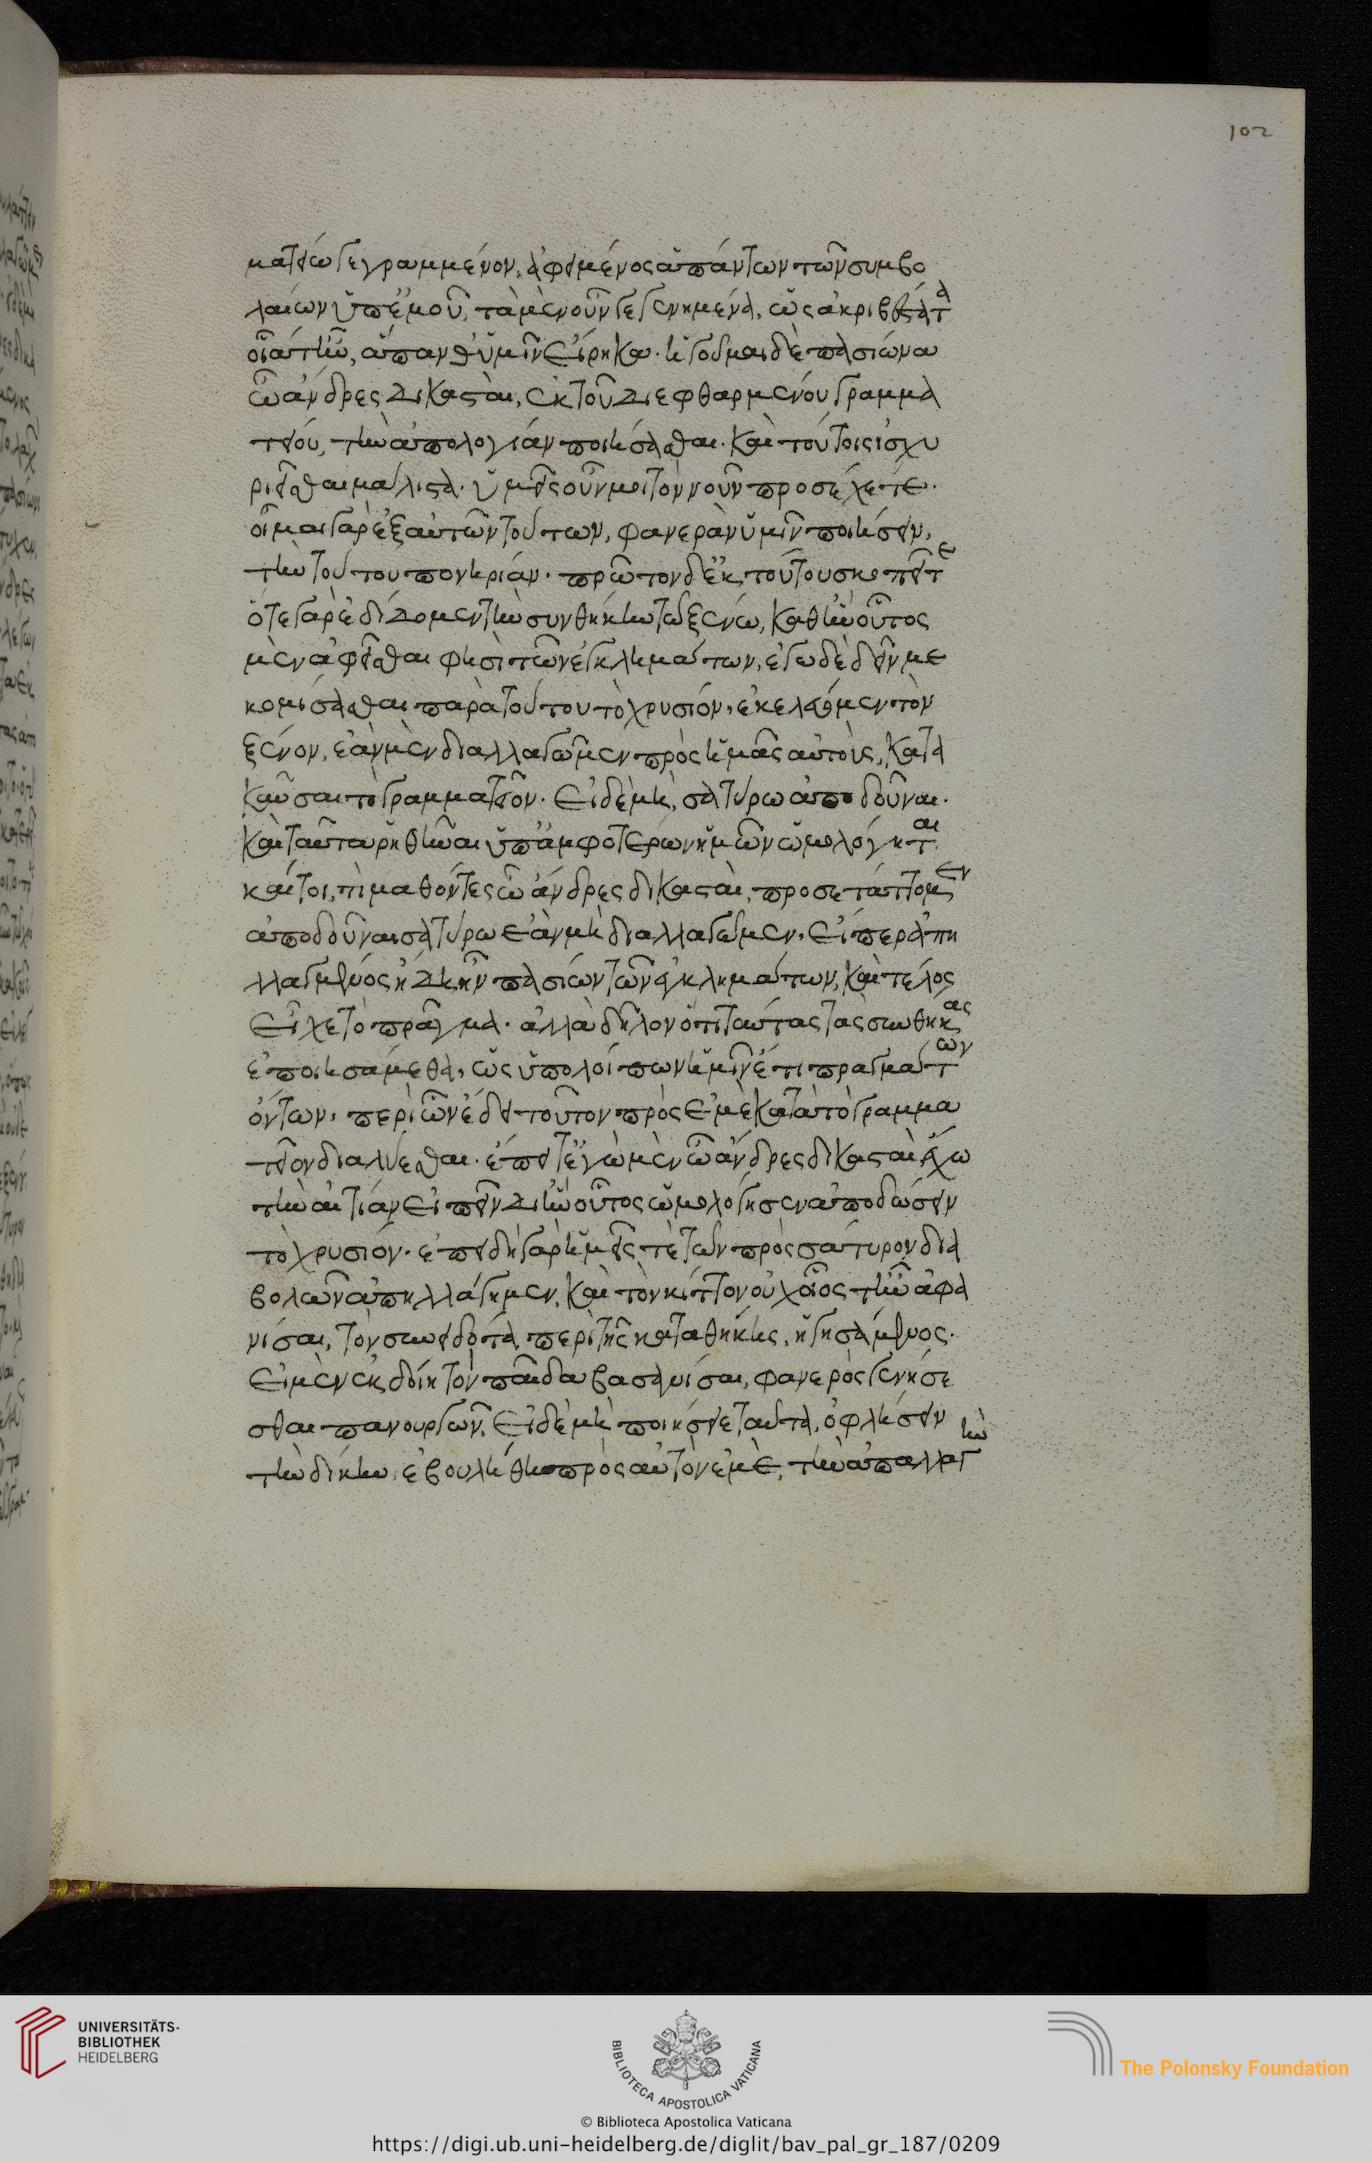 102
ματείω γεγραμμένον, ἀφειμένος ἁπάντων τῶν συμβο
λαίων ὑπ' ἐμοῦ, τὰ μὲν οὖν γεγενημένα, ὡς ἀκριβέστατα
οἷός τ' ἦν, ἅπανθ' ὑμῖν εἴρηκα. ἡγοῦμαι δὲ πασίωνα
ὦ ἄνδρες δικασταὶ, ἐκ τοῦ διεφθαρμένου γραμμα
τείου, τὴν ἀπολογίαν ποιήσασθαι. καὶ τούτοις ἰσχυ
ριεῖσθαι μάλιστα. ὑμεῖς οὖν μοι τὸν νοῦν προσέχετε.
οἶμαι γὰρ ἐξ αὐτῶν τούτων, φανερὰν ὑμῖν ποιήσειν,
τὴν τούτου πονηρίαν. πρῶτον δ' ἐκ τούτου σκοπεῖτε
ὅτε γὰρ ἐδίδομεν τὴν συνθήκην τῶ ξένω, καθ' ἣν οὗτος
μὲν ἀφεῖσθαι φησὶ τῶν ἐγκλημάτων, ἐγὼ δὲ δεῖν με
κομίσασθαι παρὰ τούτου τὸ χρυσίον, ἐκελεύομεν τὸν
ξένον, ἐὰν μὲν διαλλαγῶμεν πρὸς ἡμᾶς αὐτοὺς, κατα
καῦσαι τὸ γραμματεῖον. εἰ δὲ μὴ, σατύρω ἀποδοῦναι.
καὶ ταῦτα ῥηθῆναι ὑπ' ἀμφοτέρων ἡμῶν ὡμολόγηται
καίτοι, τί μαθόντες ὦ ἄνδρες δικασταὶ, προσετάττομεν
ἀποδοῦναι σατύρω ἐὰν μὴ διαλλαγῶμεν, εἴπερ ἀπη
λλαγμένος ἤδη ἦν πασίων τῶν ἐγκλημάτων, καὶ τέλος
εἶχε τὸ πρᾶγμα. ἀλλὰ δῆλον ὅτι ταύτας τὰς συνθήκας
ἐποιησάμεθα, ὡς ὑπολοίπων ἡμῖν ἔτι πραγμάτων
ὄντων, περὶ ὧν ἔδει τοῦτον πρὸς ἐμὲ κατὰ τὸ γραμμα
τεῖον διαλύεσθαι. ἔπειτ' ἐγὼ μὲν ὦ ἄνδρες δικασταὶ ἔχω
τὴν αἰτίαν εἰπεῖν δι' ἣν οὗτος ὡμολόγησεν ἀποδώσειν
τὸ χρυσίον. ἐπειδὴ γὰρ ἡμεῖς τε τῶν πρὸς σάτυρον δια
βολῶν ἀπηλλάγημεν, καὶ τὸν κίττον οὐχ οἷός τ' ἦν ἀφα
νίσαι, τὸν συνειδότα περὶ τῆς καταθήκης, ἡγησάμενος.
εἰ μὲν ἐκδοίη τὸν παῖδα βασανίσαι, φανερὸς γενήσε
σθαι πανουργῶν, εἰ δὲ μὴ ποιήσειε ταῦτα, ὀφλήσειν
τὴν δίκην, ἐβουλήθη πρὸς αὐτὸν ἐμὲ, τὴν ἀπαλλαγὴν
UNIVERSITÄTS-
BIBLIOTHEK
HEIDELBERG
BIBLIOTECA APOSTOLICA VATICANA
The Polonsky Foundation
© Biblioteca Apostolica Vaticana
https://digi.ub.uni-heidelberg.de/diglit/bav_pal_gr_187/0209